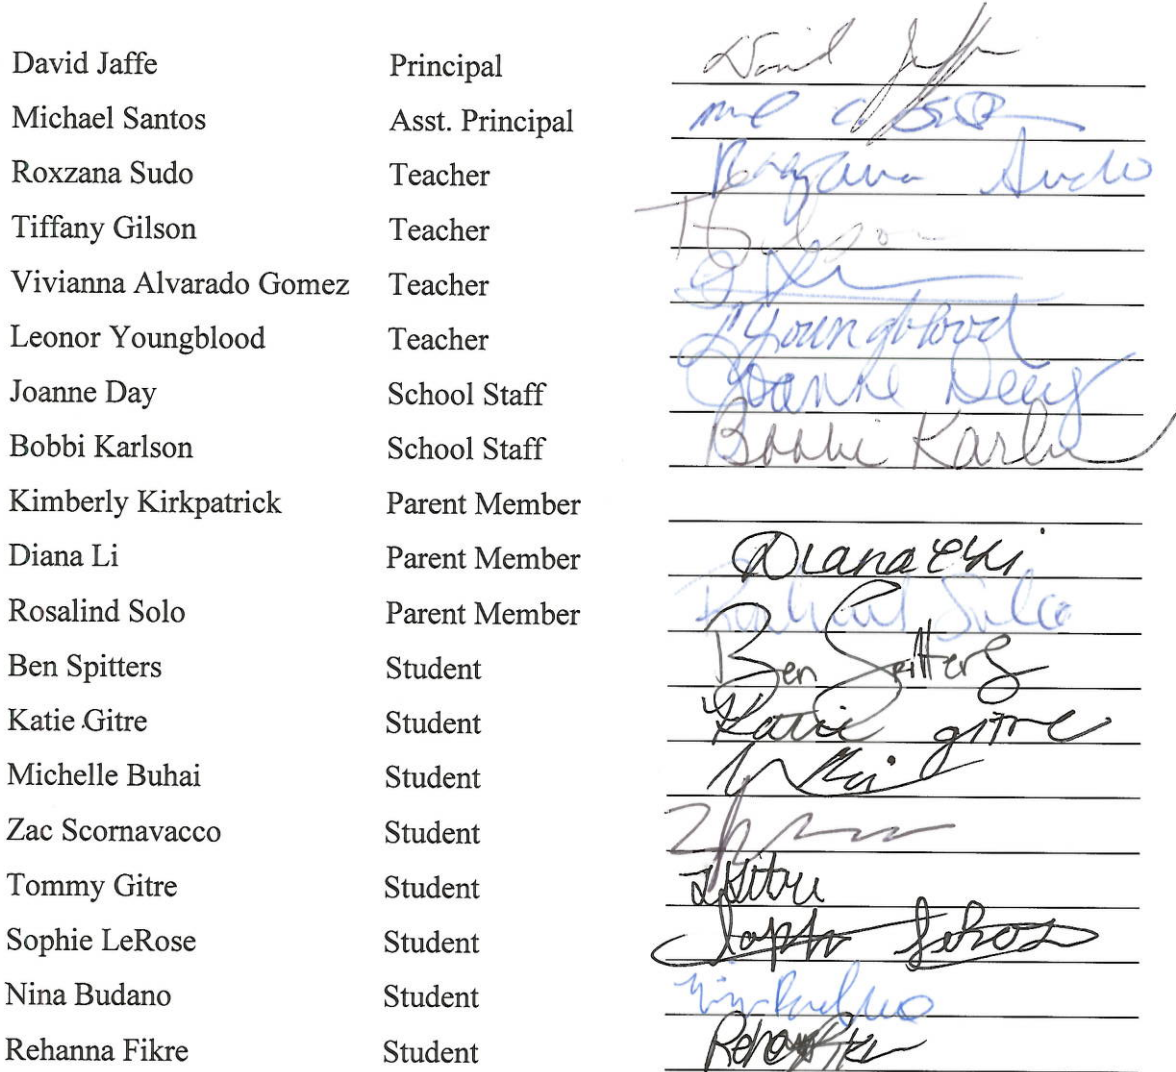 David Jaffe Principal David Jaffe
Michael Santos Asst. Principal
Roxzana Sudo Teacher Roxzana Sudo
Tiffany Gilson Teacher
Vivianna Alvarado Gomez Teacher
Leonor Youngblood Teacher LYoungblood
Joanne Day School Staff Joanne Day
Bobbi Karlson School Staff Bobbi
Kimberly Kirkpatrick Parent Member
Diana Li Parent Member Diana Li
Rosalind Solo Parent Member
Ben Spitters Student Ben Spitters
Katie Gitre Student Katie gitre
Michelle Buhai Student
Zac Scornavacco Student
Tommy Gitre Student TGitre
Sophie LeRose Student Sophie
Nina Budano Student
Rehanna Fikre Student